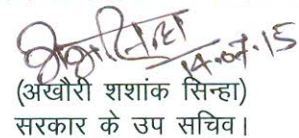 14.07.15
(अखौरी शशांक सिन्हा)
सरकार के उप सचिव।